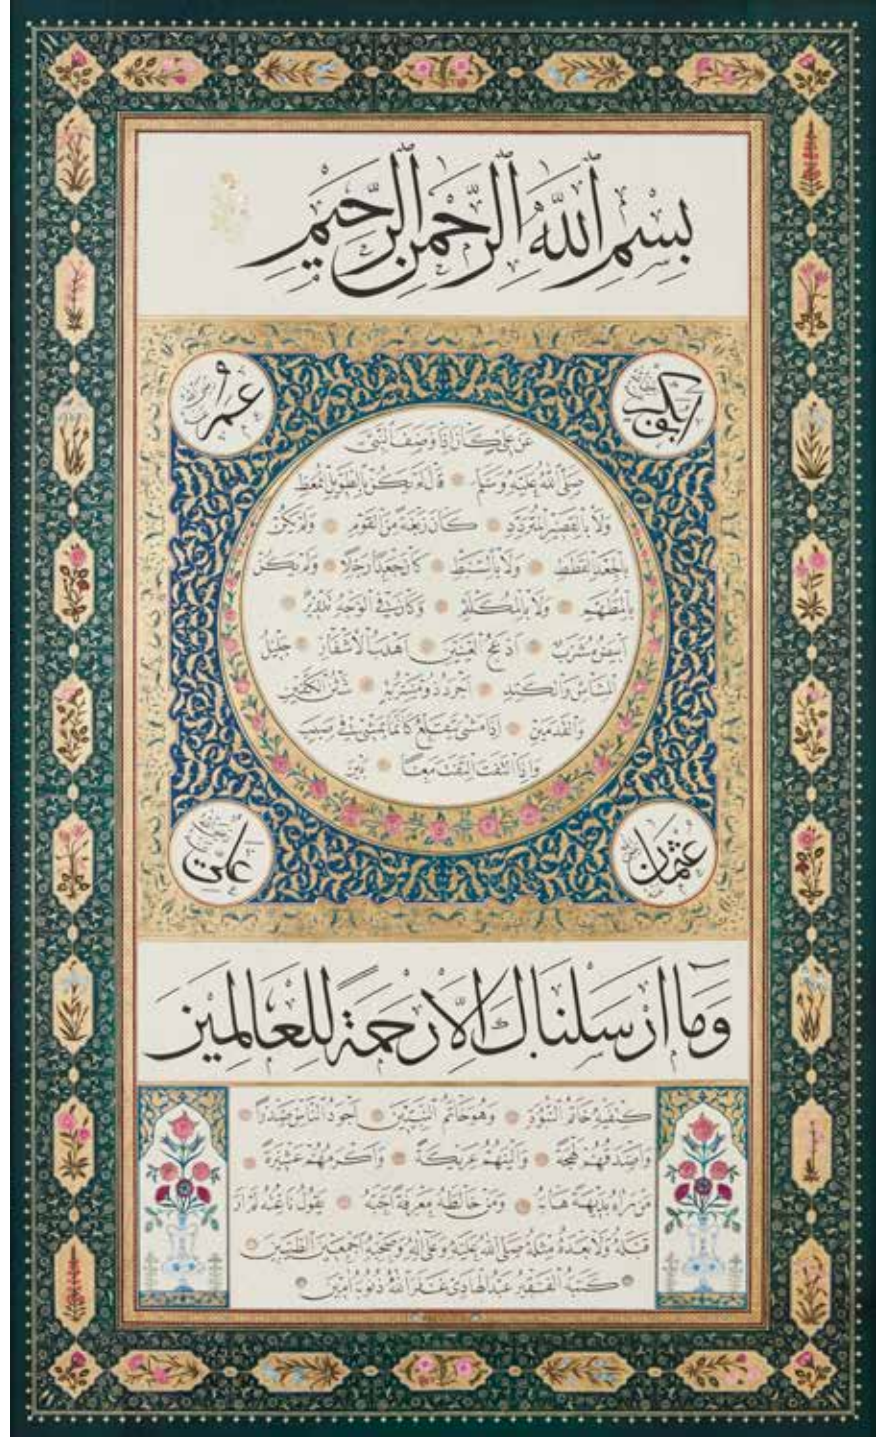 بِسْمِ اللهِ الرَّحْمٰنِ الرَّحِيْمِ
ابوبكر رضي الله عنه
عمر رضي الله عنه
عن علي كان اذا وصف النبي
صلى الله عليه وسلم قال لم يكن بالطويل الممغط
ولا بالقصير المتردد كان ربعة من القوم ولم يكن
بالجعد القطط ولا بالسبط كان جعدا رجلا ولم يكن
بالمطهم ولا بالمكلثم وكان في الوجه تدوير
ابيض مشرب ادعج العينين اهدب الاشفار جليل
المشاش والكتد اجرد ذو مسربة شثن الكفين
والقدمين اذا مشى تقلع كانما يمشي في صبب
واذا التفت التفت معا بين
عثمان
علي
وما ارسلناك الا رحمة للعالمين
كتفيه خاتم النبوة وهو خاتم النبيين اجود الناس صدرا
واصدقهم لهجة والينهم عريكة واكرمهم عشيرة
من راه بديهة هابه ومن خالطه معرفة احبه يقول ناعته لم ار
قبله ولا بعده مثله صلى الله عليه وعلى اله وصحبه اجمعين الطيبين
كتبه الفقير عبدالهادي غفر الله ذنوبه امين